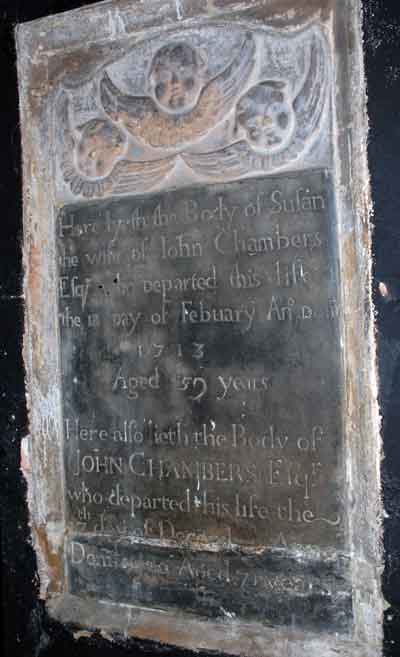 Here lyeth the Body of Susan
the wife of Iohn Chambers
Esqr who Departed this life
the Day of Febuary Ano Dom
1713
Aged 59 years
Here also lieth the Body of
JOHN CHAMBERS Esqr
who departed this life the
7th day of December
Aged 71 years